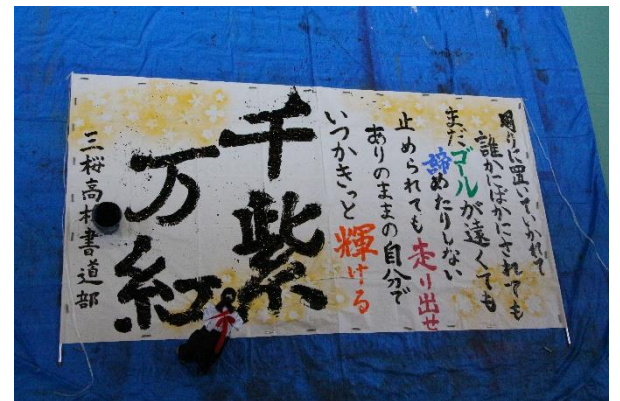 周りに置いていかれて
誰かにばかにされても
まだゴールが遠くても
諦めたりしない
止められても走り出せ
ありのままの自分で
いつかきっと輝ける
千紫
万紅
三桜高校書道部